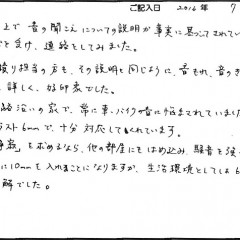 ご記入日 2016年 7
上で音の聞こえについての説明が事実に基づてされてい
を受け、連絡としてみました。
積り担当の方も、その説明と同じように、音もれ、音のき
詳しく、好印象でした。
路沿いの家で、常に車、バイクが音に悩まされていました
ラスト6mmで、十分対応してくれています。
お求めるなら、他の部屋にもはめ込み、騒音を強
に10mmを入れることになりますが、生活環境としては6
解でした。